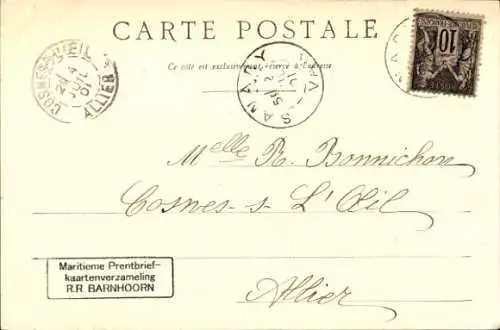 CARTE POSTALE
Ce côté est exclusivement réservé à l'adresse
COSNE SUR L'ŒIL
ALLIER
SANARY
VAR
10
Melle R. Bonnichon
Cosnes-s-L'Œil
Allier
Maritieme Prentbrief-
kaartenverzameling
R.R BARNHOORN